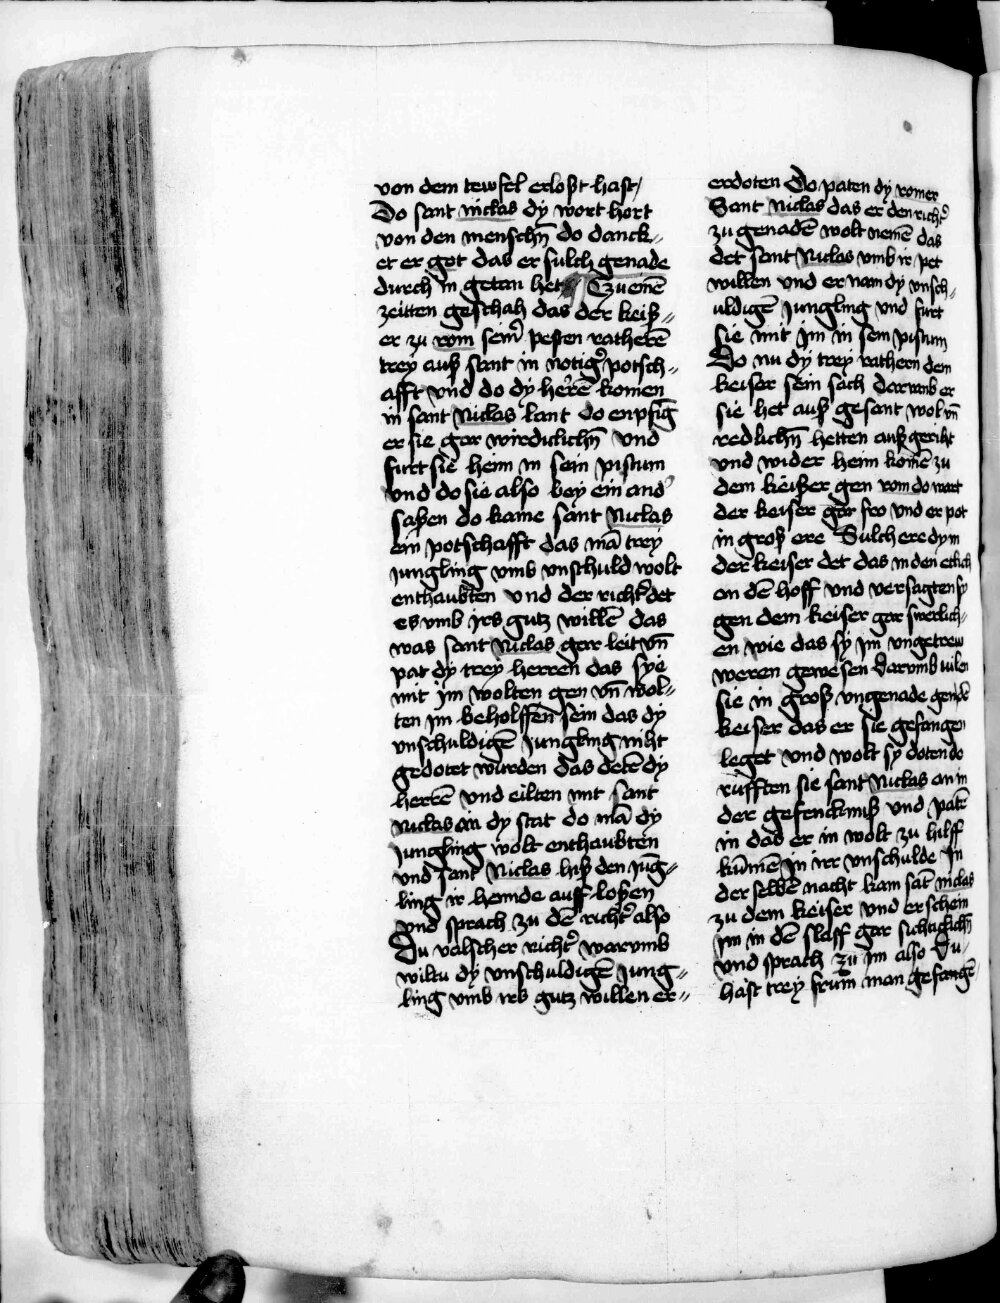 von dem tewfel erloßt hast /
Do sant nicklas dy wort hort
von den menschn̄ do danck„
et er got das er sulch genade
durch in getan het Tzu einē
zeitten geschah das der keiß„
er zu rom seinˀ pesten ratherē
trey auß sant in notigˀ potsch„
afft vnd do dy herē komen
in sant Niclas lant do enpfīg
er sie gar wirdiclichn̄ vnd
furt sie heim in sein pistum
vnd do sie also bey ein andˀ
saßen do kame sant Niclas
ein potschafft das mā trey
Jungling vmb vnschuld wolt
enthaubten vnd der richtˀ det
es vmb jrs gutz willē das
was sant Niclas gar leit vn̄
pat dy trey herren das sye
mit jm wolten gen vn̄ wol„
ten jm beholffen sein das dy
vnschuldigē Jungling niht
gedotet wurden das detē dy
herrē vnd eilten mit sant
Niclas an dy stat do mā dy
Jungling wolt enthaubten
vnd sant Niclas hiß den jūg„
ling ir hemde auff loßen
vnd sprach zu dē richtˀ also
Du valscher richtˀ warvmb
wiltu dy vnschuldigē Jung„
ling vmb irs gutz willen er„
erdoten Do paten dy romer
Sant Niclas das er den richtˀ
zu genadē wolt nemē das
det sant Niclas vmb ir pet
willen vnd er nam dy vnsch„
uldigē Jungling vnd furt
sie mit jm in sein pistum
Do nu dy trey rathern dem
keiser sein sach darvmb er
sie het auß gesant wol vn̄
redlichn̄ hetten auß geriht
vnd wider heim komē zu
dem keißer gen rom do wart
der keiser gar fro vnd er pot
in groß ere Sulch ere dy in
der keiser det das in den etlich
an dē hoff vnd versagten sy
gen dem keiser gar swerlich„
en wie das sy jm vngetrew
weren gewesen darvmb vilen
sie in groß vngenade gen dē
keiser das er sie gefangen
leget vnd wolt sy doten do
rufften sie sant Niclas an in
der gefencknuß vnd patē
in das er in wolt zu hilff
kūmē in irr vnschulde In
der selbē nacht kam sāt niclas
zu dem keiser vnd er schein
jm in dē slaff gar sichticlichn̄
vnd sprach zu jm also Du
hast trey frum man gefangē